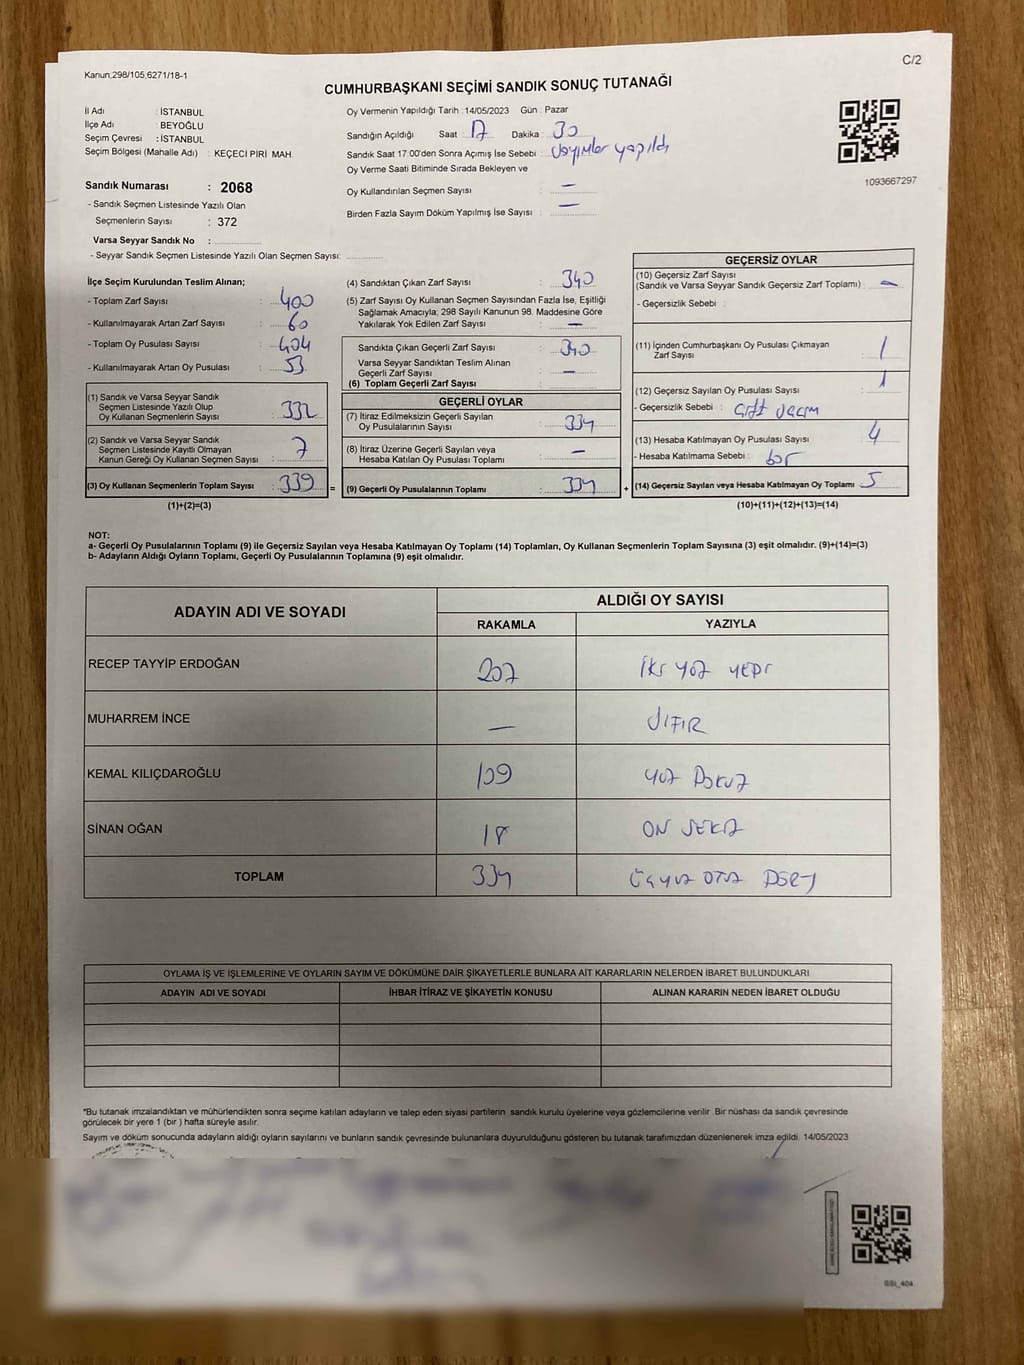 C/2
Kanun,298/105;6271/18-1
CUMHURBAŞKANI SEÇİMİ SANDIK SONUÇ TUTANAĞI
İl Adı : İSTANBUL
İlçe Adı : BEYOĞLU
Seçim Çevresi : İSTANBUL
Seçim Bölgesi (Mahalle Adı) : KEÇECİ PİRİ MAH
Sandık Numarası : 2068
- Sandık Seçmen Listesinde Yazılı Olan
Seçmenlerin Sayısı : 372
Varsa Seyyar Sandık No :
- Seyyar Sandık Seçmen Listesinde Yazılı Olan Seçmen Sayısı:
Oy Vermenin Yapıldığı Tarih :14/05/2023 Gün : Pazar
Sandığın Açıldığı Saat : 17 Dakika : 30
Sandık Saat 17:00'den Sonra Açımış İse Sebebi : sayımlar yapıldı
Oy Verme Saati Bitiminde Sırada Bekleyen ve
Oy Kullandırılan Seçmen Sayısı : —
Birden Fazla Sayım Döküm Yapılmış İse Sayısı : —
1093667297
İlçe Seçim Kurulundan Teslim Alınan;
- Toplam Zarf Sayısı : 400
- Kullanılmayarak Artan Zarf Sayısı : 60
- Toplam Oy Pusulası Sayısı : 404
- Kullanılmayarak Artan Oy Pusulası : 53
(1) Sandık ve Varsa Seyyar Sandık
Seçmen Listesinde Yazılı Olup
Oy Kullanan Seçmenlerin Sayısı : 332
(2) Sandık ve Varsa Seyyar Sandık
Seçmen Listesinde Kayıtlı Olmayan
Kanun Gereği Oy Kullanan Seçmen Sayısı : 7
(3) Oy Kullanan Seçmenlerin Toplam Sayısı : 339 =
(1)+(2)=(3)
(4) Sandıktan Çıkan Zarf Sayısı : 340
(5) Zarf Sayısı Oy Kullanan Seçmen Sayısından Fazla İse, Eşitliği
Sağlamak Amacıyla; 298 Sayılı Kanunun 98. Maddesine Göre
Yakılarak Yok Edilen Zarf Sayısı : —
Sandıkta Çıkan Geçerli Zarf Sayısı : 340
Varsa Seyyar Sandıktan Teslim Alınan
Geçerli Zarf Sayısı : —
(6) Toplam Geçerli Zarf Sayısı :
GEÇERLİ OYLAR
(7) İtiraz Edilmeksizin Geçerli Sayılan
Oy Pusulalarının Sayısı : 334
(8) İtiraz Üzerine Geçerli Sayılan veya
Hesaba Katılan Oy Pusulası Toplamı : —
(9) Geçerli Oy Pusulalarının Toplamı : 334 +
GEÇERSİZ OYLAR
(10) Geçersiz Zarf Sayısı
(Sandık ve Varsa Seyyar Sandık Geçersiz Zarf Toplamı) : —
- Geçersizlik Sebebi :
(11) İçinden Cumhurbaşkanı Oy Pusulası Çıkmayan
Zarf Sayısı : 1
(12) Geçersiz Sayılan Oy Pusulası Sayısı : 1
- Geçersizlik Sebebi : çift seçim
(13) Hesaba Katılmayan Oy Pusulası Sayısı : 4
- Hesaba Katılmama Sebebi : boş
(14) Geçersiz Sayılan veya Hesaba Katılmayan Oy Toplamı : 5
(10)+(11)+(12)+(13)=(14)
NOT:
a- Geçerli Oy Pusulalarının Toplamı (9) ile Geçersiz Sayılan veya Hesaba Katılmayan Oy Toplamı (14) Toplamları, Oy Kullanan Seçmenlerin Toplam Sayısına (3) eşit olmalıdır. (9)+(14)=(3)
b- Adayların Aldığı Oyların Toplamı, Geçerli Oy Pusulalarının Toplamına (9) eşit olmalıdır.
ADAYIN ADI VE SOYADI ALDIĞI OY SAYISI
RAKAMLA YAZIYLA
RECEP TAYYİP ERDOĞAN 207 İKİ YÜZ YEDİ
MUHARREM İNCE — SIFIR
KEMAL KILIÇDAROĞLU 109 YÜZ DOKUZ
SİNAN OĞAN 18 ON SEKİZ
TOPLAM 334 ÜÇYÜZ OTUZ DÖRT
OYLAMA İŞ VE İŞLEMLERİNE VE OYLARIN SAYIM VE DÖKÜMÜNE DAİR ŞİKAYETLERLE BUNLARA AİT KARARLARIN NELERDEN İBARET BULUNDUKLARI
ADAYIN ADI VE SOYADI İHBAR İTİRAZ VE ŞİKAYETİN KONUSU ALINAN KARARIN NEDEN İBARET OLDUĞU
*Bu tutanak imzalandıktan ve mühürlendikten sonra seçime katılan adayların ve talep eden siyasi partilerin sandık kurulu üyelerine veya gözlemcilerine verilir. Bir nüshası da sandık çevresinde
görülecek bir yere 1 (bir ) hafta süreyle asılır.
Sayım ve döküm sonucunda adayların aldığı oyların sayılarını ve bunların sandık çevresinde bulunanlara duyurulduğunu gösteren bu tutanak tarafımızdan düzenlenerek imza edildi. 14/05/2023
SSI_404